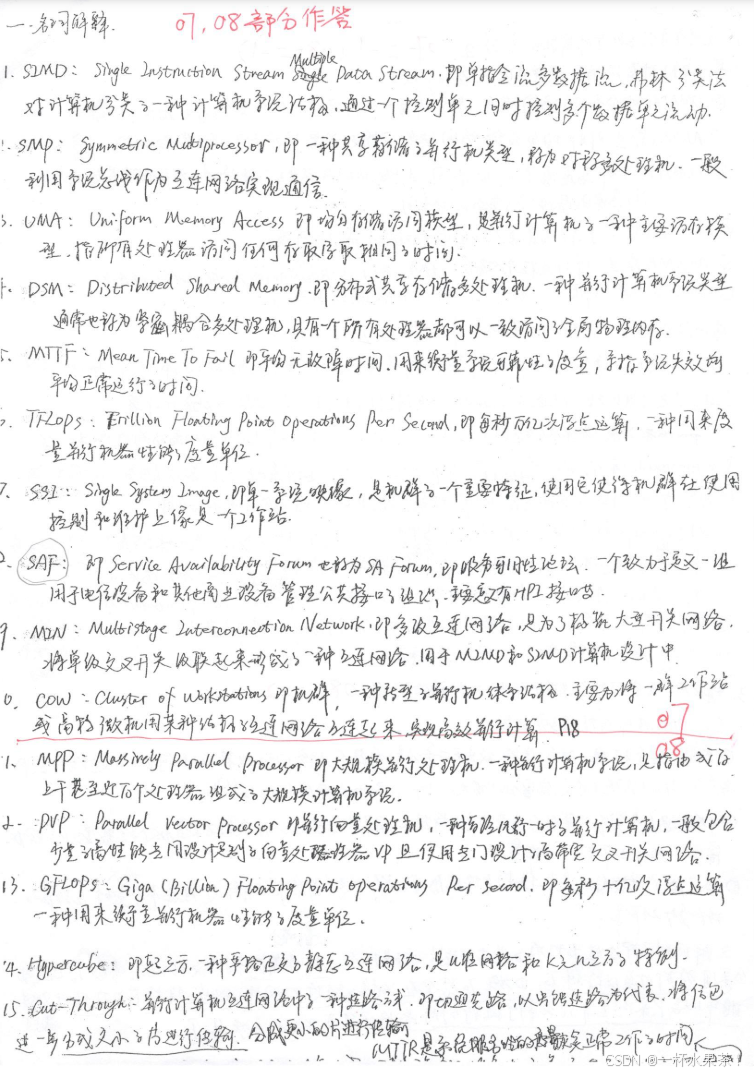 一.名词解释. 07,08部分作答
1. SIMD: Single Instruction Stream Multiple Data Stream. 即单指令流多数据流, 弗林分类法
对计算机分类的一种计算机系统结构, 通过一个控制单元同时控制多个数据单元流动.
SMP: Symmetric Multiprocessor, 即一种共享存储的并行机类型, 称为对称多处理机. 一般
利用系统总线作为互连网络实现通信.
UMA: Uniform Memory Access 即均匀存储访问模型, 是并行计算机的一种主要访存模
型. 指所有处理器访问任何存取字取相同的时间.
DSM: Distributed Shared Memory. 即分布式共享存储多处理机. 一种并行计算机系统类型
通常也称为紧密耦合多处理机, 具有一个所有处理器都可以一致访问的全局物理内存.
MTTF: Mean Time To Fail 即平均无故障时间. 用来衡量系统可靠性的度量, 系统失效的
平均正常运行的时间.
TFLOPS: Floating Point Operations Per Second, 即每秒万亿次浮点运算, 一种用来度
量并行机器性能的度量单位.
7. SSI: Single System Image, 即单一系统映像, 是机群的一个重要特征, 使用它使得机群在使用
控制和维护上像是一个工作站.
SAF: 即 Service Availability Forum 也称为 SA Forum, 即服务可用性论坛. 一个致力于定义一组
用于电信设备和其他商业设备管理公共接口的组织. 主要定义有HPI接口等.
9. MIN: Multistage Interconnection Network, 即多级互连网络, 是为了构筑大型开关网络,
将单级交叉开关级联起来形成的一种互连网络. 用于MIMD和SIMD计算机设计中.
0. COW: Cluster of Workstations 即机群, 一种转型的并行机体系结构. 主要为将一群工作站
或高档微机用某种结构的互连网络互连起来, 实现高效并行计算. P18 07
08
1. MPP: Massively Parallel Processor 即大规模并行处理机. 一种并行计算机系统, 是指由成百
上千甚至近万个处理器组成的大规模计算机系统.
2. PVP: Parallel Vector Processor 即并行向量处理机, 一种流行一时的并行计算机, 一般包含
少量的高性能专用设计定制的向量处理器VP且使用专门设计的高带宽交叉开关网络.
13. GFLOPS: Giga (Billion) Floating Point Operations Per Second. 即每秒十亿次浮点运算
一种用来衡量并行机器性能的度量单位.
4. Hypercube: 即超立方, 一种严格正交的静态互连网络, 是n维网格和K元n立方的特例.
15. Cut-Through: 并行计算机互连网络中的一种选路方式. 即切通选路, 以虫蚀选路为代表, 将信包
进一步分成更小的片进行传输. 分成更小的片进行传输
MTTR是系统服务性的 正常工作的时间
CSDN @一杯水果茶！